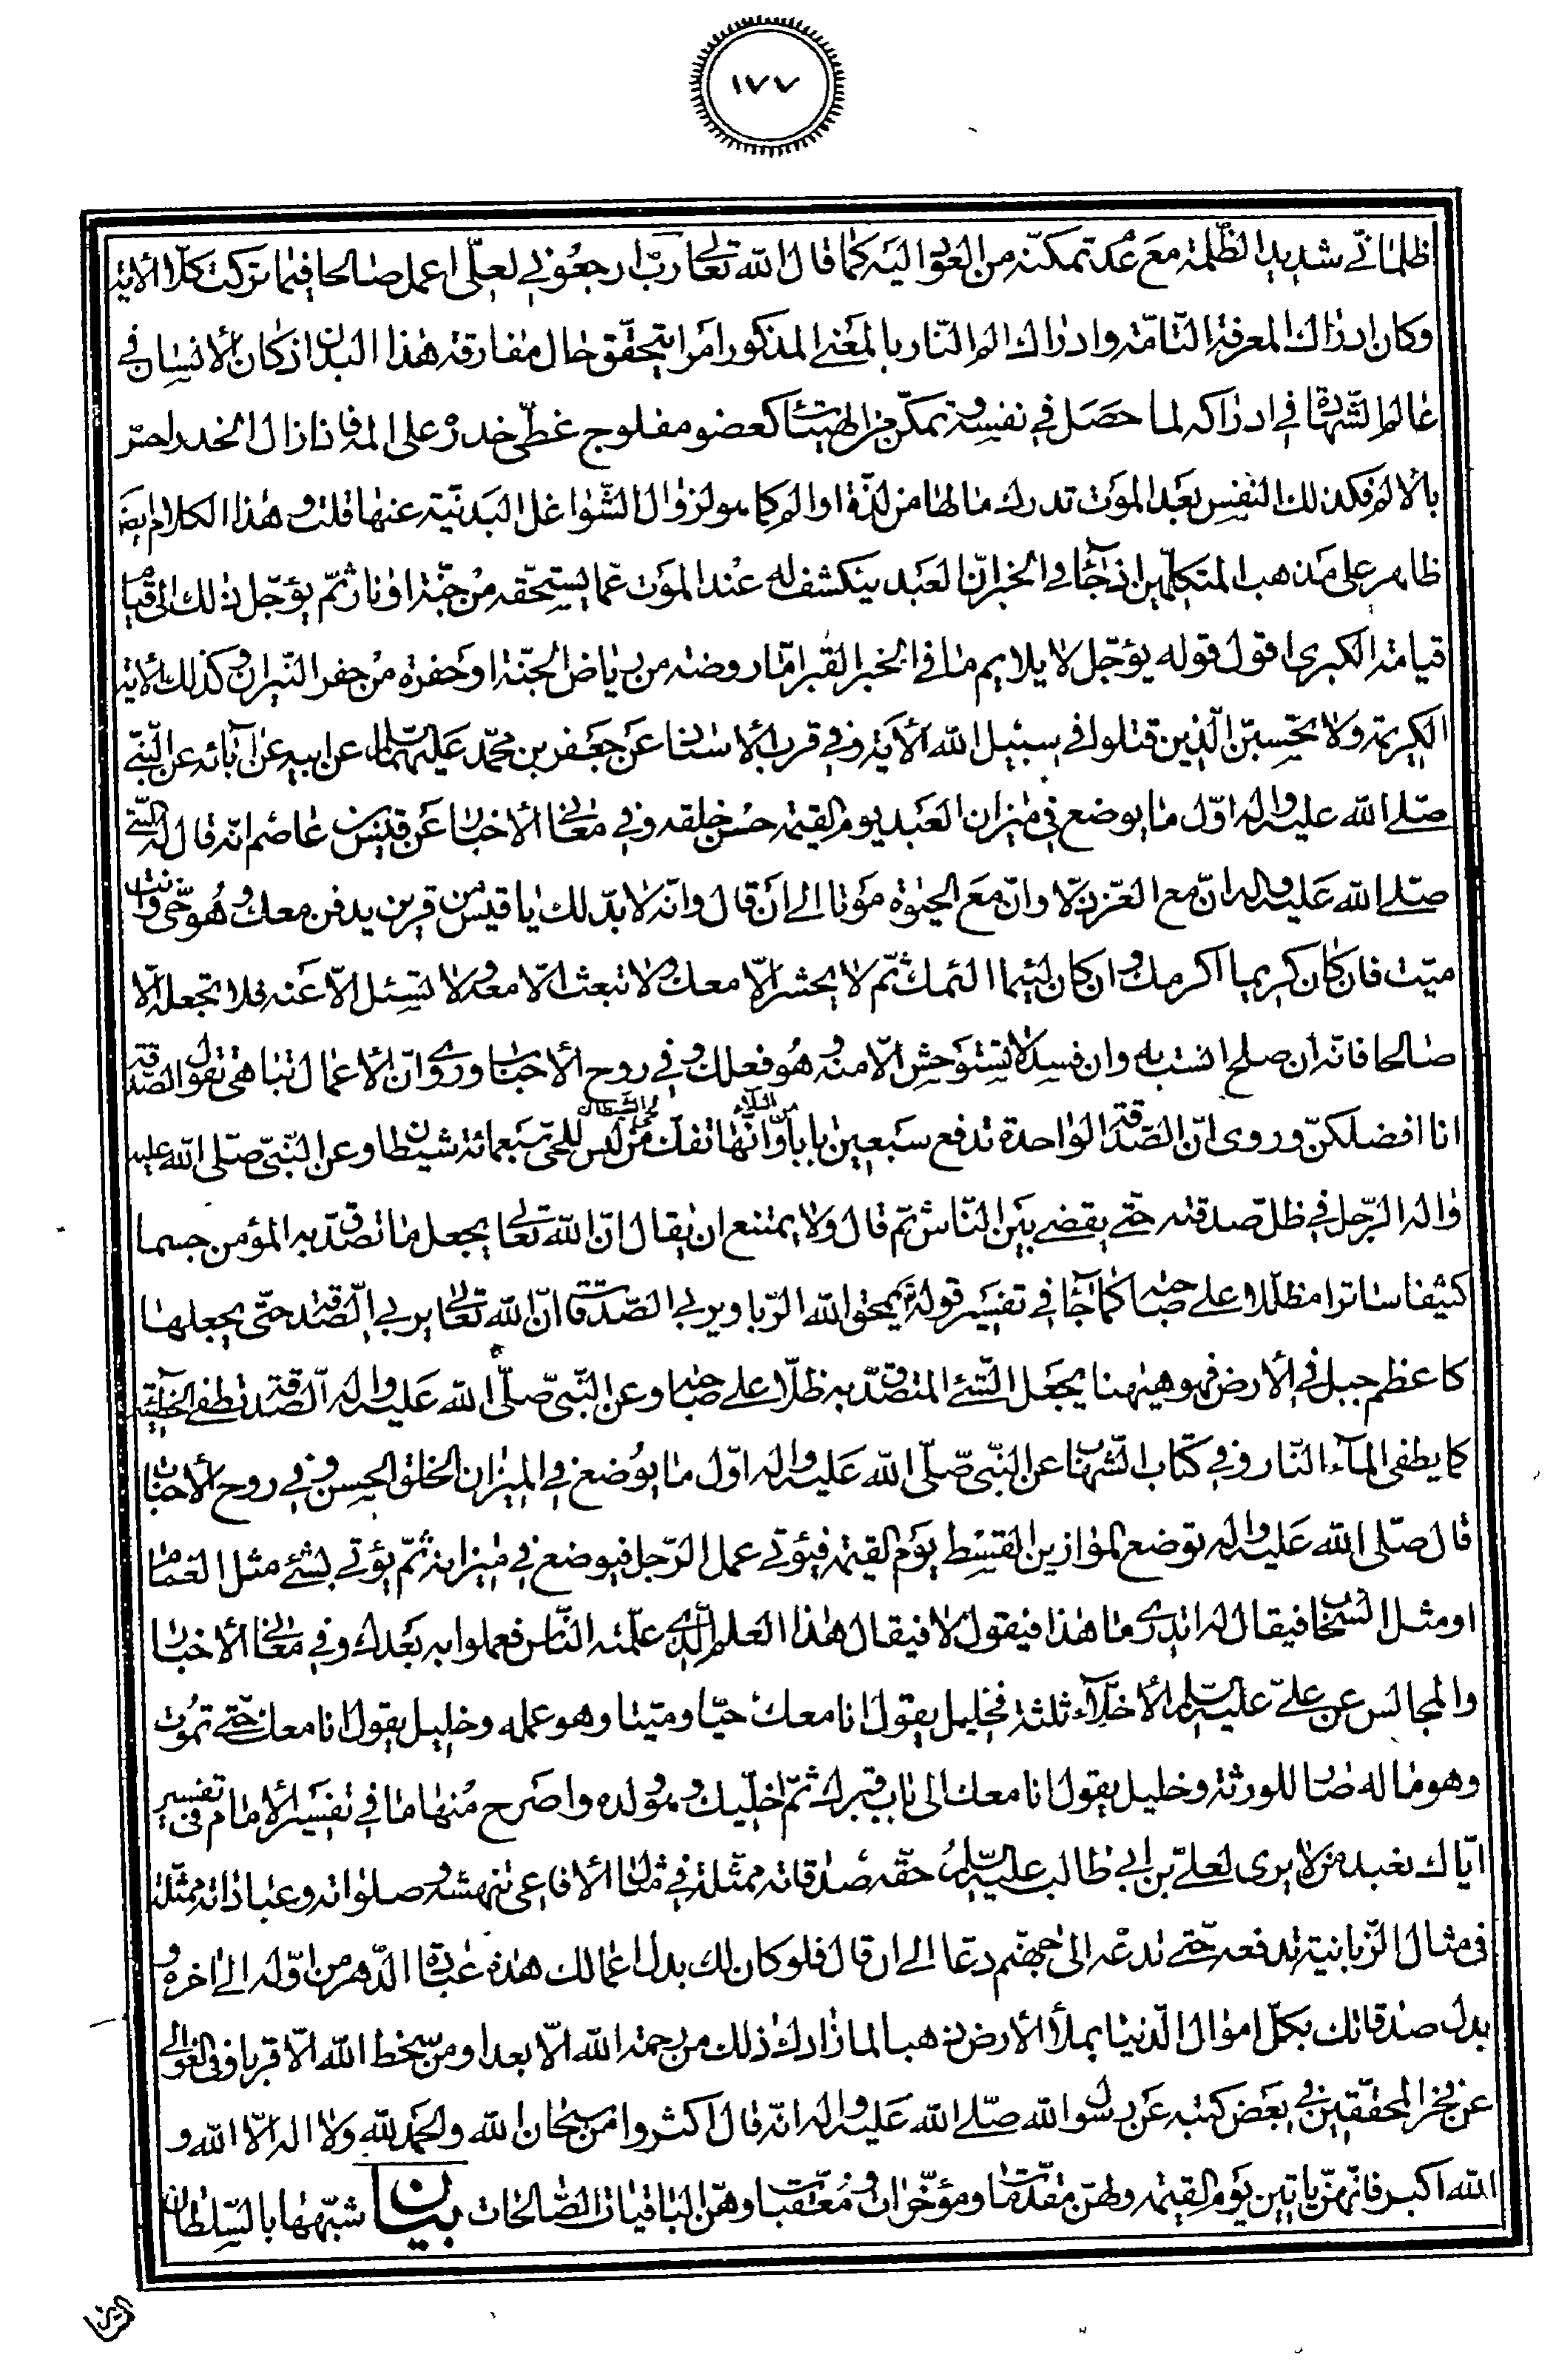 ١٧٧
ظلمانيّ شديد الظّلمة مع عدم تمكنه من العود اليه كما قال الله تعالى ربّ ارجعوني لعلّى اعمل صالحا فيما تركت كلّا الأية
وكان ادراك المعرفة التّامّة وادراك الم النّار بالمعنى المذكور امرا يتحقّق حال مفارقة هذا البدن اذ كان الأنسان في
عالم الشّهادة في ادراكه لما حصل في نفسه وتمكّن من الهيئات كعضو مفلوج غطّى خدر على المه فاذا زال الخدر احسّ
بالألم فكذلك النّفس بعد الموت تدرك مالها من لذّة او الم كما هو لزوال الشّواغل البدنيّة عنها قلت وهذا الكلام ايضا
ظاهر على مذهب المتكلّمين اذ جآء في الخبر انّ العبد ينكشف له عند الموت عمّا يستحقّه من جنّة او نار ثمّ يؤجّل ذلك الى قيام
قيامته الكبرى اقول قوله يؤجّل لا يلايم ما في الخبر القبر امّا روضة من رياض الجنّة او حفرة من حفر النّيران وكذلك الأية
الكريمة ولا تحسبنّ الّذين قتلوا في سبيل الله الأية وفي قرب الأسناد عن جعفر بن محمّد عليهما السّلام عن ابيه عن آبائه عن النّبيّ
صلّى الله عليه واله اوّل ما يوضع في ميزان العبد يوم القيمة حسن خلقه وفي معاني الأخبار عن قيس بن عاصم انّه قال له النّبيّ
صلّى الله عليه واله انّ مع العزّ ذلّا وانّ مع الحيوة موتا الى ان قال وانّه لا بدّ لك يا قيس من قرين يدفن معك وهو حيّ وانت
ميّت فان كان كريما اكرمك وان كان لئيما الئمك ثمّ لا يحشر الّا معك ولا تبعث الّا معه ولا تسئل الّا عنه فلا تجعله الّا
صالحا فانّه ان صلح انست به وان فسد لا تستوحش الّا منه وهو فعلك وفي روح الأحباب وروي انّ الأعمال تتباهى تقول الصّدقة
انا افضلكنّ وروى انّ الصّدقة الواحدة تدفع سبعين بابا من البلاء وانّها تفكّ من لحى سبعمائة شيطان وعن النّبيّ صلّى الله عليه
واله الرّجل في ظلّ صدقته حتّى يقضى بين النّاس ثمّ قال ولا يمتنع ان يقال انّ الله تعالى يجعل ما تصدّق به المؤمن جسما
كثيفا ساترا مظلّلا على صاحبه كما جآء في تفسير قوله تعالى يمحق الله الرّبا ويربي الصّدقات انّ الله تعالى يربي الصّدقة حتّى يجعلها
كاعظم جبل في الأرض فهو هيهنا يجعل الشّيء المتصدّق به ظلّا على صاحبه وعن النّبيّ صلّى الله عليه واله الصّدقة تطفي الخطيئة
كما يطفى المآء النّار وفي كتاب الشّهاب عن النّبيّ صلّى الله عليه واله اوّل ما يوضع في الميزان الخلق الحسن وفي روح الأحباب
قال صلّى الله عليه واله توضع الموازين القسط يوم القيمة فيؤتى عمل الرّجل فيوضع في ميزانه ثمّ يؤتى بشيء مثل الغمام
او مثل السّحاب فيقال له اتدري ما هذا فيقول لا فيقال هذا العلم الّذي علّمته النّاس فعملوا به بعدك وفي معاني الأخبار
والمجالس عن عليّ عليه السّلام الأخلّاء ثلثة فخليل يقول انا معك حيّا وميّتا وهو عمله وخليل يقول انا معك حتّى تموت
وهو ماله صار للورثة وخليل يقول انا معك الى باب قبرك ثمّ اخلّيك وهو ولده واصرح منها ما في تفسير الأمام في تفسير
ايّاك نعبد من لا يرى لعليّ بن ابي طالب عليه السّلام حقّه صدقاته ممثّلة في مثال الأفاعي تنهشه وصلواته وعباداته ممثّلة
في مثال الزّبانية تدفعه حتّى تدعّه الى جهنّم دعّا الى ان قال فلو كان لك بدل اعمالك هذه عبادة الدّهر من اوّله الى اخره و
بدل صدقاتك بكلّ اموال الدّنيا بملأ الأرض ذهبا لما زادك ذلك من رحمة الله الّا بعدا ومن سخط الله الّا قربا وفي الغوالي
عن فخر المحقّقين في بعض كتبه عن رسول الله صلّى الله عليه واله انّه قال اكثروا من سبحان الله والحمد لله ولا اله الّا الله و
الله اكبر فانّهنّ ياتين يوم القيمة ولهنّ مقدّمات ومؤخّرات ومعقّبات وهنّ الباقيات الصّالحات بيان شبّهها بالسّلطان